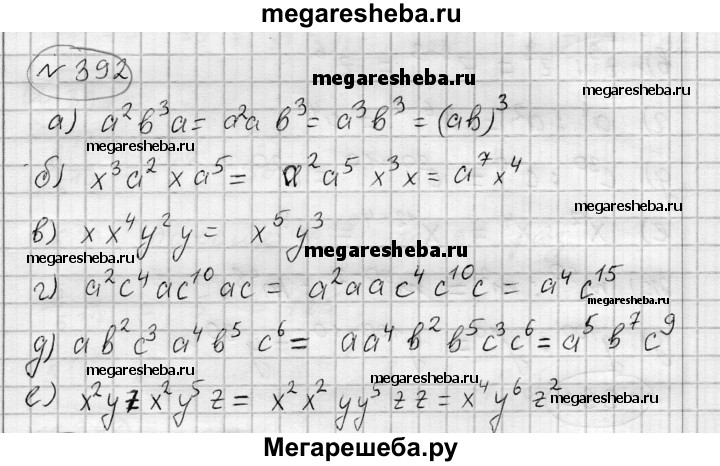 megaresheba.ru
№ 392
megaresheba.ru
а) a²b³a = a²a b³ = a³b³ = (ab)³
megaresheba.ru
megaresheba.ru
б) x³a²xa⁵ = a²a⁵x³x = a⁷x⁴
megaresheba.ru
в) xx⁴y²y = x⁵y³
megaresheba.ru
megaresheba.ru
г) a²c⁴ac¹⁰ac = a²aac⁴c¹⁰c = a⁴c¹⁵
megaresheba.ru
megaresheba.ru
д) ab²c³a⁴b⁵c⁶ = aa⁴b²b⁵c³c⁶ = a⁵b⁷c⁹
megaresheba.ru
megaresheba.ru
е) x²yzx²y⁵z = x²x²yy⁵zz = x⁴y⁶z²
megaresheba.ru
Мегарешеба.ру